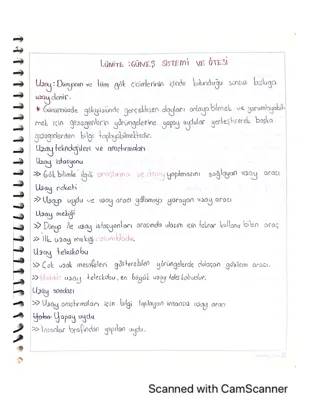 1.ÜNİTE :GÜNEŞ SİSTEMİ VE ÖTESİ
Uzay: Dünyanın ve tüm gök cisimlerinin içinde bulunduğu sonsuz boşluğa
uzay denir.
* Günümüzde gökyüzünde gerçekleşen olayları anlayabilmek ve yorumlayabil-
mek için gezegenlerin yörüngelerine yapay uydular yerleştirerek başka
gezegenlerden bilgi toplayabilmektedir.
Uzay teknolojileri ve araştırmaları
Uzay istasyonu
>> Gök bilimle ilgili araştırma ve deney yapılmasını sağlayan uzay aracı
Uzay roketi
>> Uydu ve uzay aracı yarayan uzay aracı
Uzay mekiği
>> Dünya ile uzay istasyonları arasında ulaşım için tekrar kullanıla bilen araç
>> İlk uzay mekiği
Uzay teleskobu
>> Çok uzak mesafeleri gösterebilen yörüngelerde dolaşan gözlem aracı.
>> Hubble uzay teleskobu, en büyük uzay teleskobudur.
Uzay sondası
>> Uzay araştırmaları için bilgi toplayan insansız uzay aracı
Yapay uydu
>> İnsanlar tarafından yapılan uydu.
Scanned with CamScanner